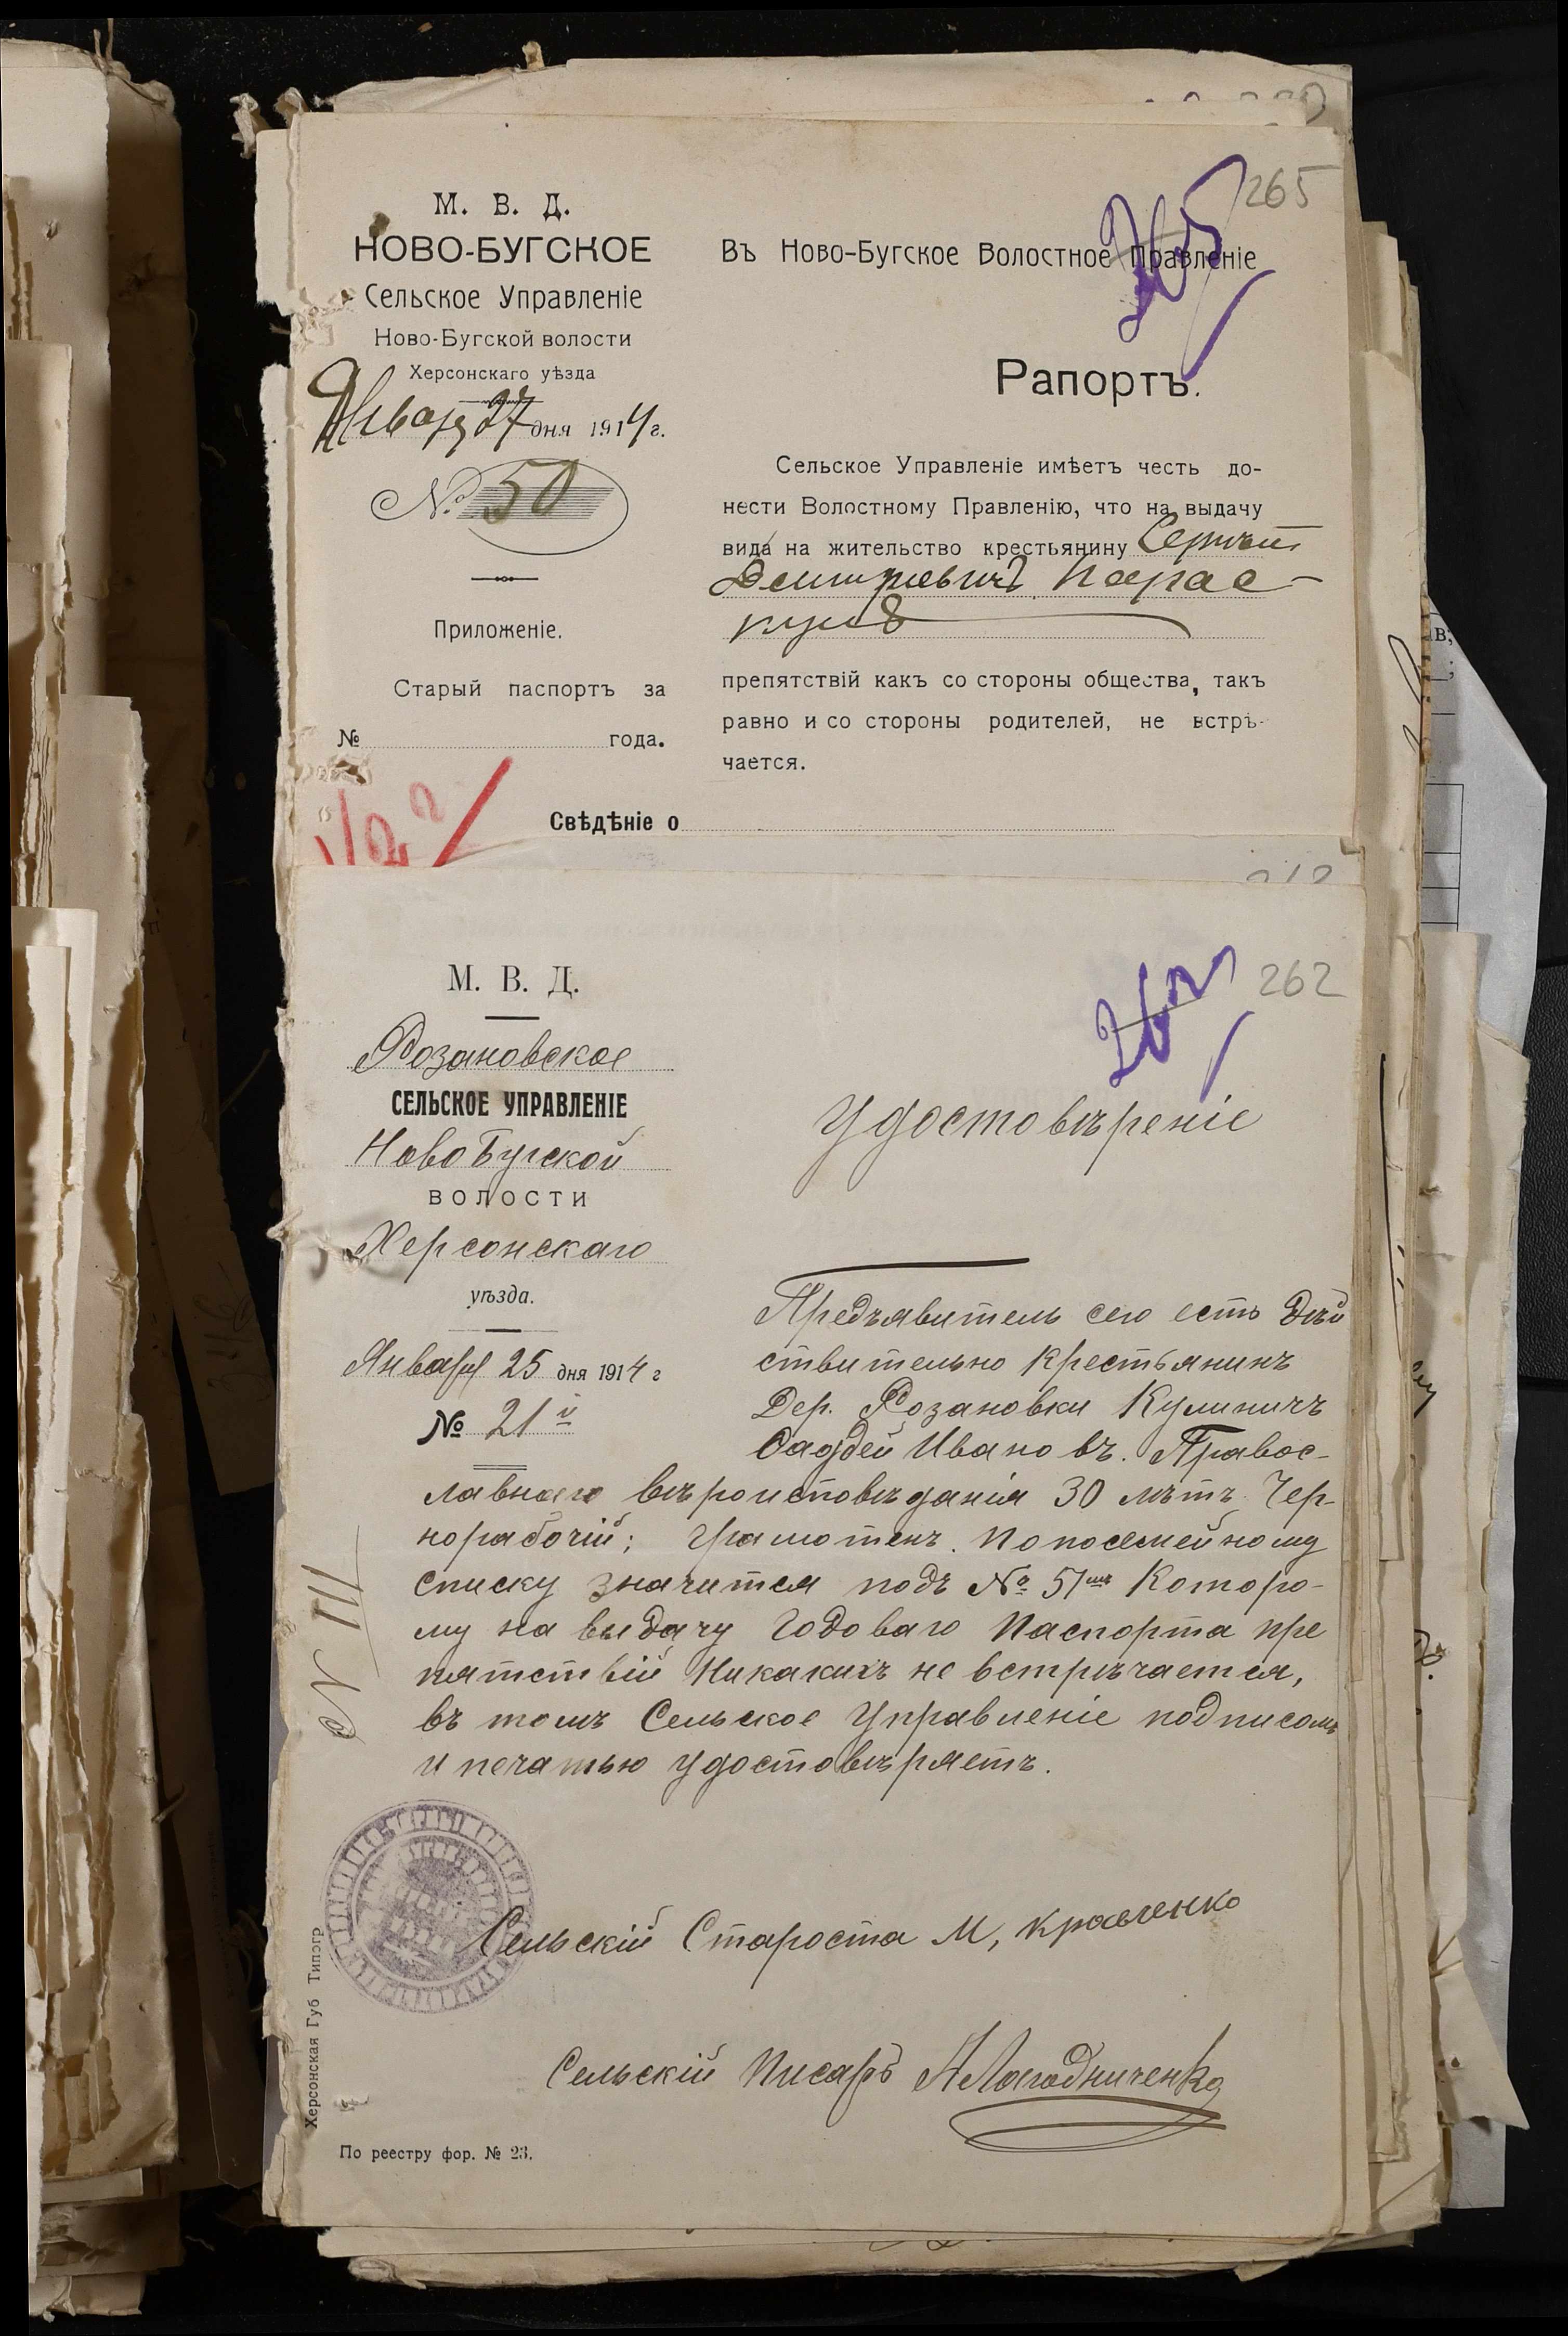 265
265
М. В. Д.
НОВО-БУГСКОЕ
Сельское Управленіе
Ново-Бугской волости
Херсонскаго уѣзда
Января 27 дня 1914 г.
№ 50
Приложеніе.
Старый паспортъ за
№ года.
Въ Ново-Бугское Волостное Правленіе
Рапортъ.
Сельское Управленіе имѣетъ честь до-
нести Волостному Правленію, что на выдачу
вида на жительство крестьянину
препятствій какъ со стороны общества, такъ
равно и со стороны родителей, не встрѣ-
чается.
Свѣдѣніе о
262
262
М. В. Д.
Розановское
СЕЛЬСКОЕ УПРАВЛЕНІЕ
Ново Бугской
ВОЛОСТИ
Херсонскаго
уѣзда.
Января 25 дня 1914 г
№ 21й
Удостовѣреніе
Предъявитель сего есть Дѣй
ствительно крестьянинъ
Дер. Розановки Кулиничъ
Фаддей Ивановъ. Правос-
лавнаго вѣроисповѣданія 30 лѣтъ Чер-
норабочій; Грамотенъ. По посемейному
списку значится подъ № 51мъ Которо-
му на выдачу Годоваго Паспорта пре
пятствій Никакихъ не встрѣчается,
въ томъ Сельское Управленіе подписомъ
и печатью удостовѣряетъ.
№ III
Сельскій Староста М, Кравченко
Сельскій Писарь
Херсонская Губ Типогр
По реестру фор. № 23.